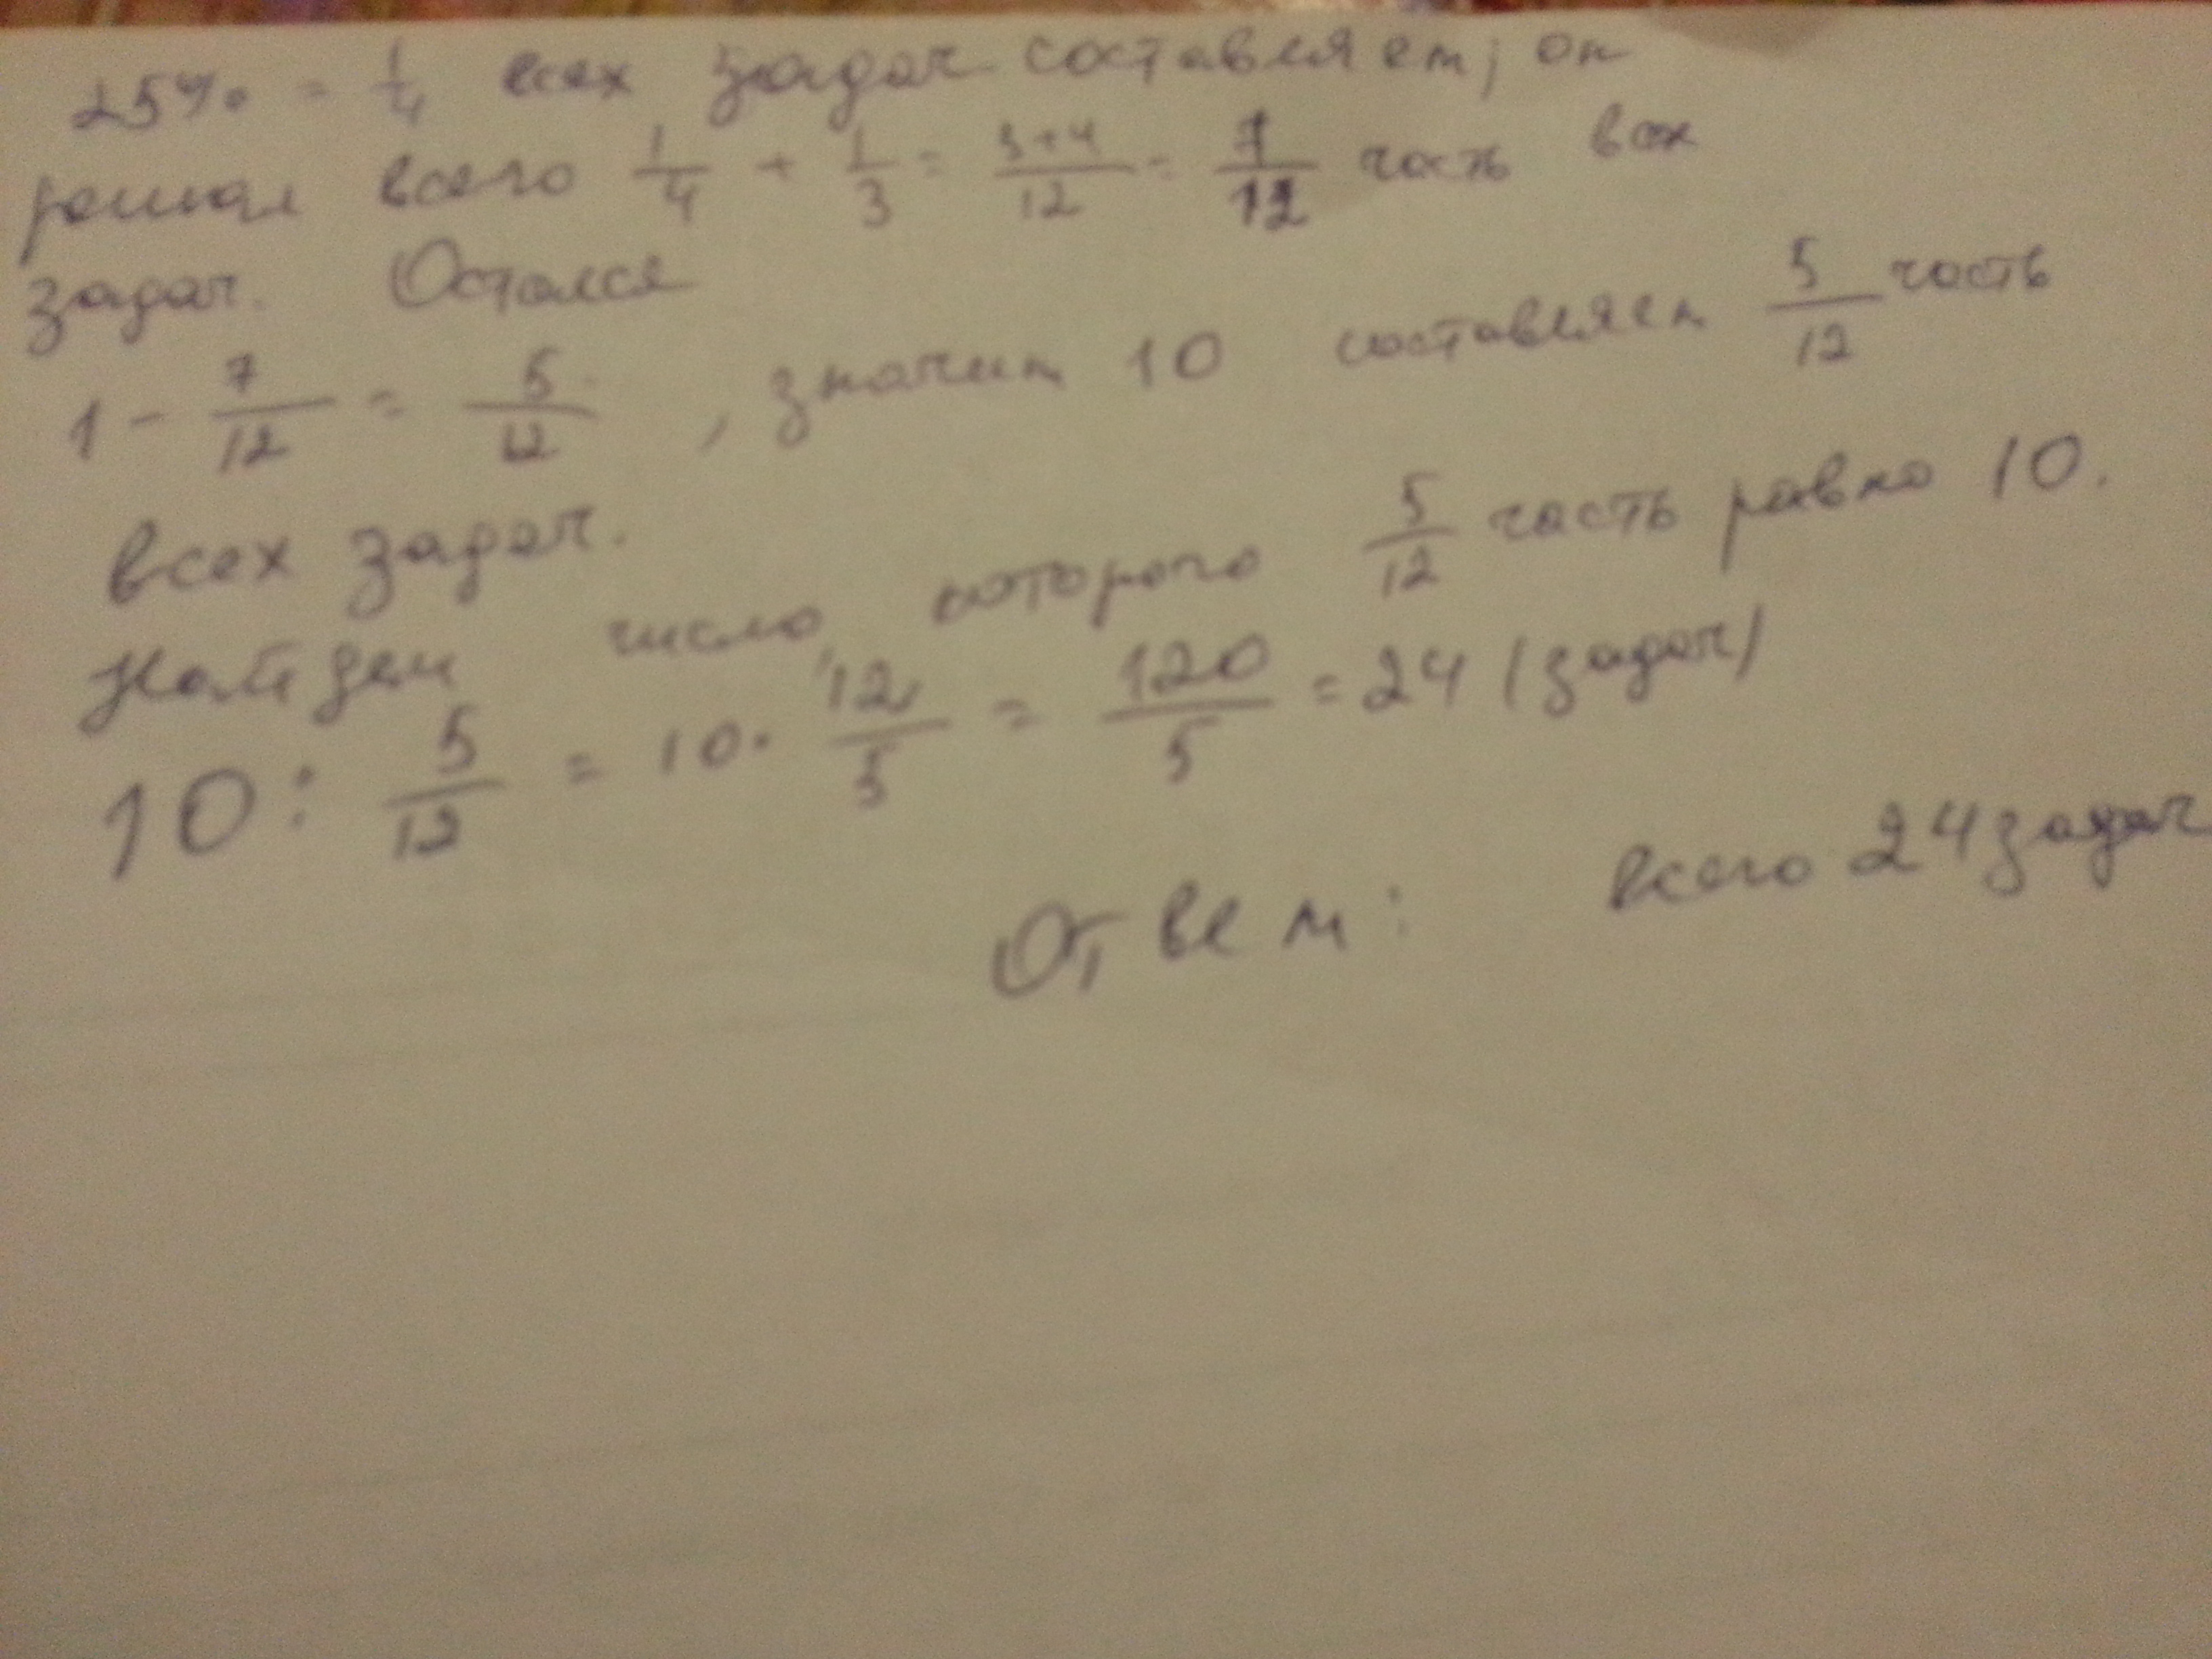 25% = 1/4 всех задач составляет; он
решал всего 1/4 + 1/3 = 3+4/12 = 7/12 часть всех
задач. Остался
1 - 7/12 = 5/12, значит 10 составляет 5/12 часть
всех задач.
Найдем число, которого 5/12 часть равно 10.
10 : 5/12 = 10 · 12/5 = 120/5 = 24 (задач)
Ответ: всего 24 задач